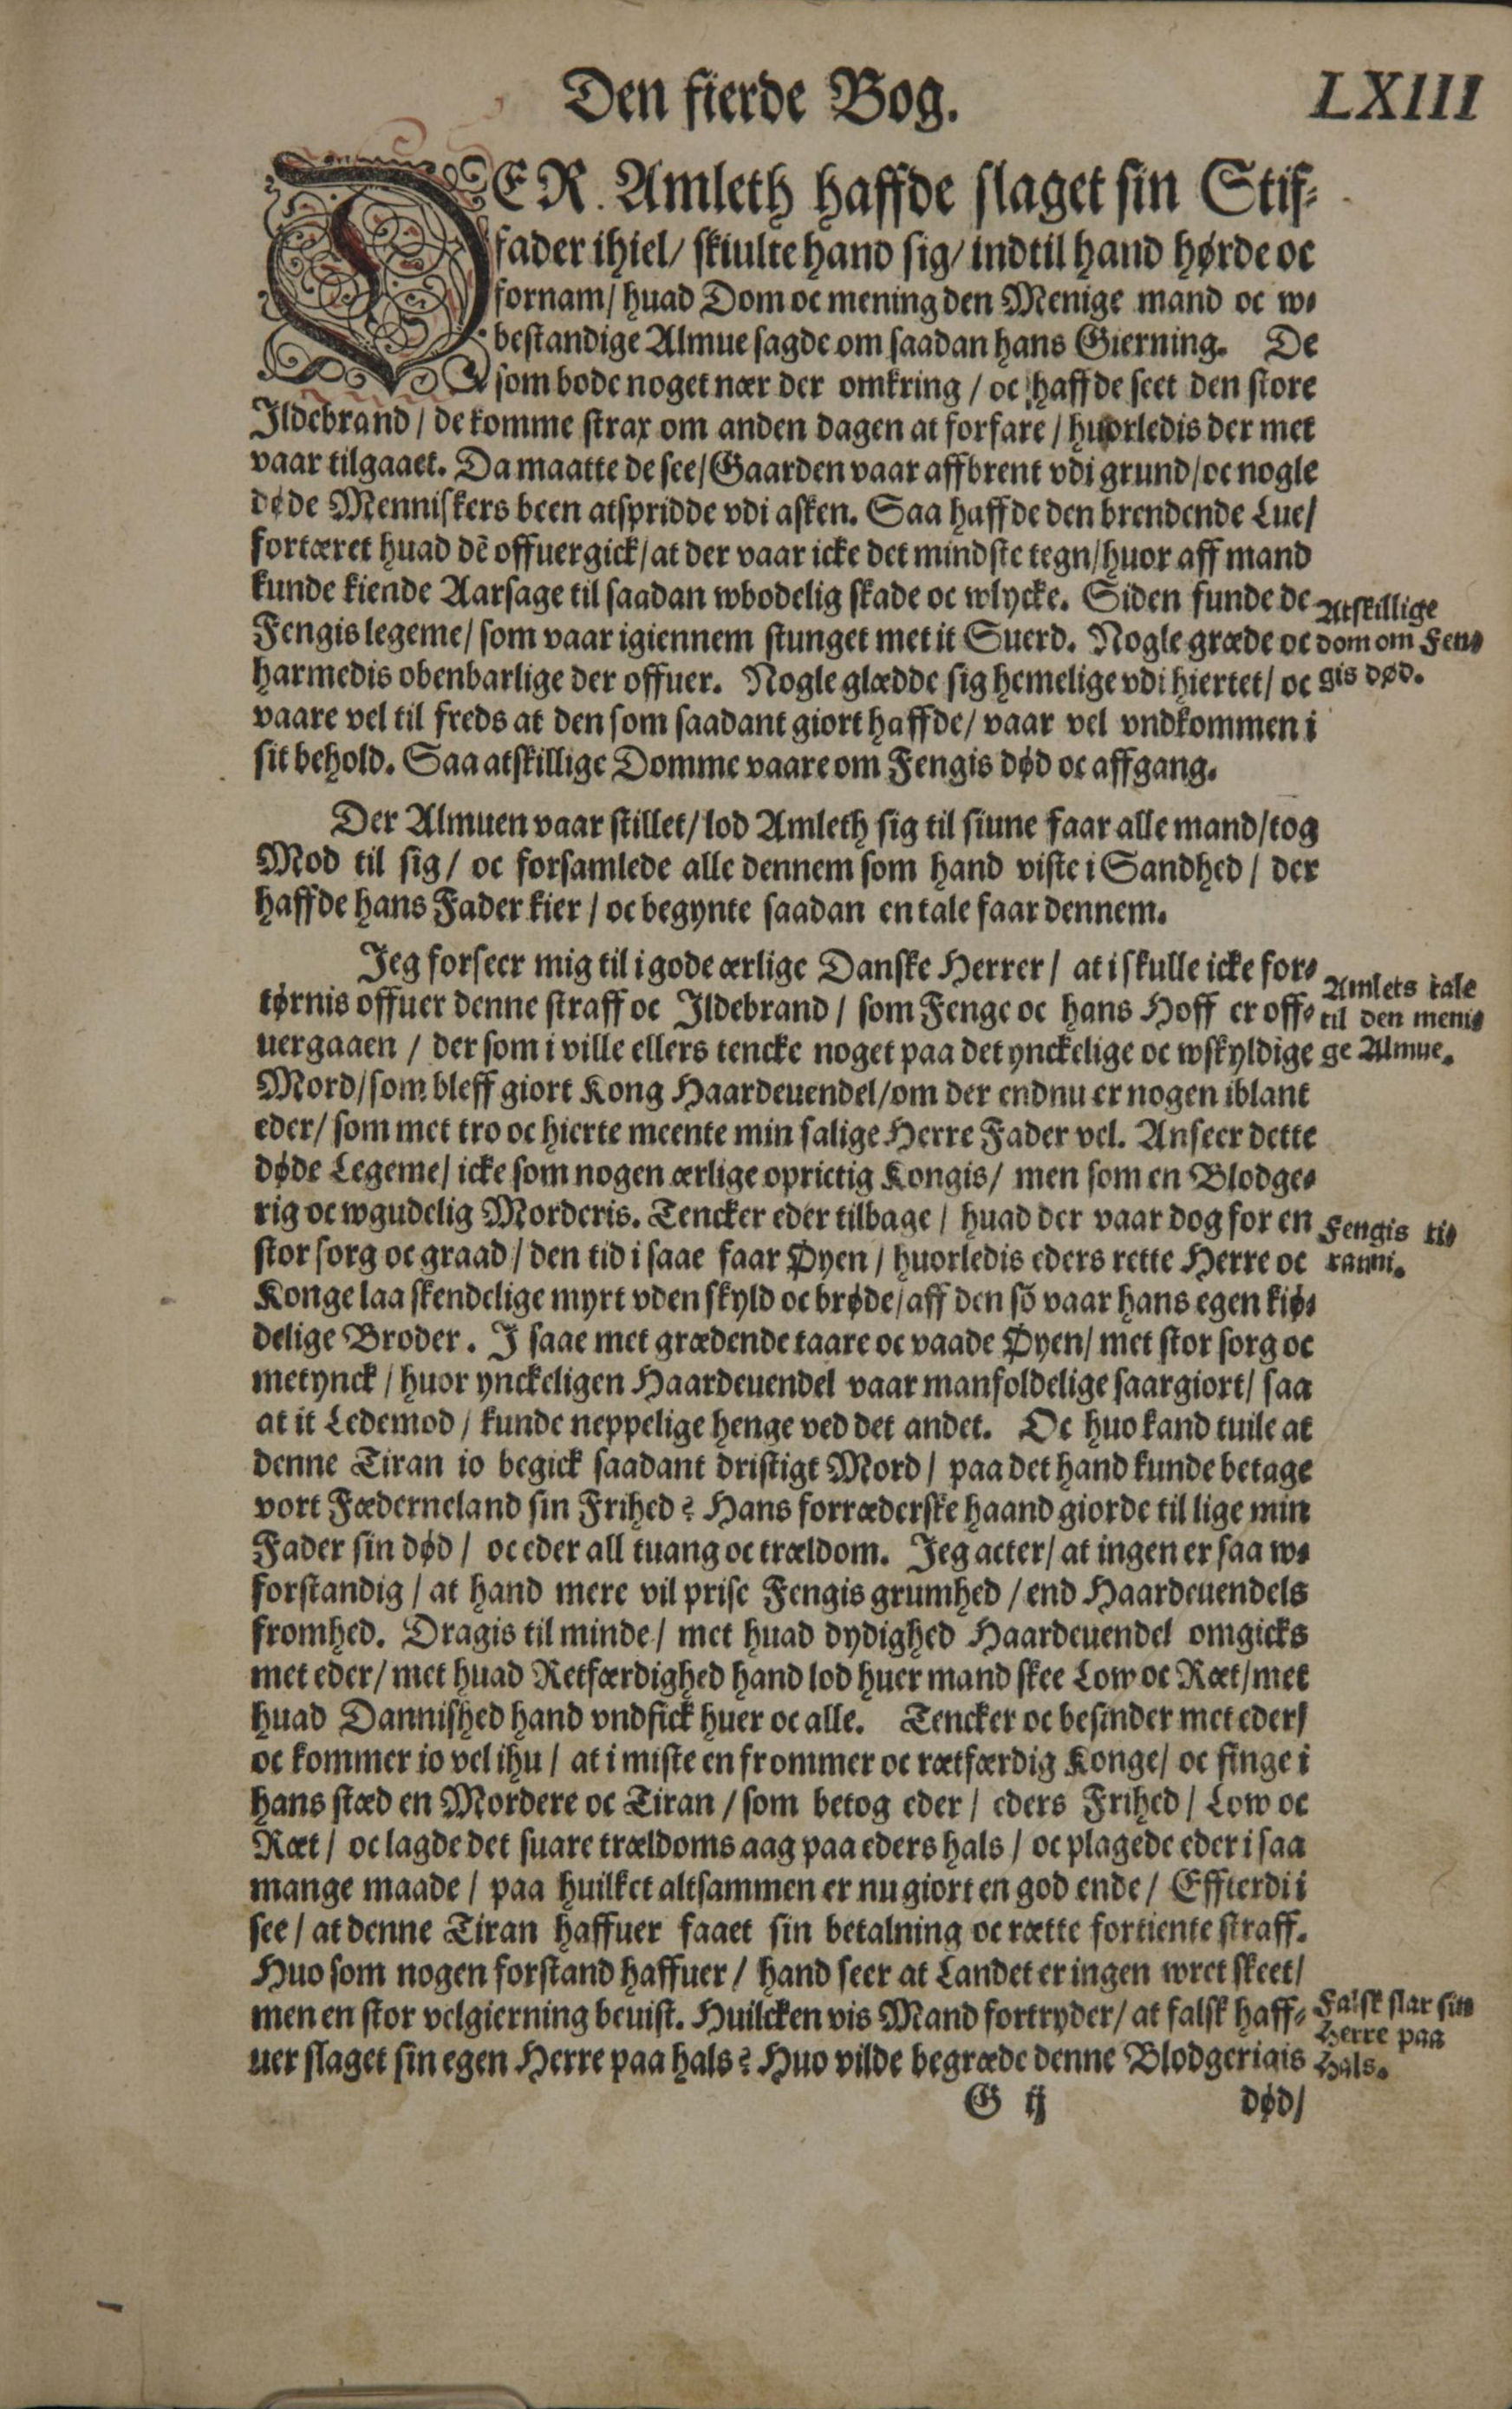 Den fierde Bog.
LXIII
DER Amleth haffde slaget sin Stif-
fader ihiel/ skiulte hand sig/ indtil hand hørde oc
fornam/ huad Dom oc mening den Menige mand oc w-
bestandige Almue sagde om saadan hans Gierning. De
som bode noget nær der omkring / oc haffde seet den store
Ildebrand / de komme strax om anden dagen at forfare / huorledis der met
vaar tilgaaet. Da maatte de see/ Gaarden vaar affbrent vdi grund/ oc nogle
døde Menniskers been atspridde vdi asken. Saa haffde den brendende Lue/
fortæret huad dē offuergick/ at der vaar icke det mindste tegn/ huor aff mand
kunde kiende Aarsage til saadan wbodelig skade oc wlycke. Siden funde de
Fengis legeme/ som vaar igiennem stunget met it Suerd. Nogle græde oc
harmedis obenbarlige der offuer. Nogle glædde sig hemelige vdi hiertet/ oc
vaare vel til freds at den som saadant giort haffde/ vaar vel vndkommen i
sit behold. Saa atskillige Domme vaare om Fengis død oc affgang.
Atskillige
dom om Fen-
gis død.
Der Almuen vaar stillet/ lod Amleth sig til siune faar alle mand/ tog
Mod til sig/ oc forsamlede alle dennem som hand viste i Sandhed / der
haffde hans Fader kier / oc begynte saadan en tale faar dennem.
Jeg forseer mig til i gode ærlige Danske Herrer/ at i skulle icke for-
tørnis offuer denne straff oc Ildebrand / som Fenge oc hans Hoff er off-
uergaaen / der som i ville ellers tencke noget paa det ynckelige oc wskyldige
Mord/ som bleff giort Kong Haardeuendel/ om der endnu er nogen iblant
eder/ som met tro oc hierte meente min salige Herre Fader vel. Anseer dette
døde Legeme/ icke som nogen ærlige oprictig Kongis/ men som en Blodge-
rig oc wgudelig Morderis. Tencker eder tilbage / huad der vaar dog for en
stor sorg oc graad / den tid i saae faar Øyen / huorledis eders rette Herre oc
Konge laa skendelige myrt vden skyld oc brøde/ aff den sō vaar hans egen kiø-
delige Broder. I saae met grædende taare oc vaade Øyen/ met stor sorg oc
met ynck / huor ynckeligen Haardeuendel vaar manfoldelige saar giort/ saa
at it Ledemod / kunde neppelige henge ved det andet. Oc huo kand tuile at
denne Tiran io begick saadant dristigt Mord / paa det hand kunde betage
vort Fæderneland sin Frihed? Hans forræderske haand giorde til lige min
Fader sin død / oc eder all tuang oc trældom. Jeg acter/ at ingen er saa w-
forstandig / at hand mere vil prise Fengis grumhed / end Haardeuendels
fromhed. Dragis til minde / met huad dydighed Haardeuendel omgicks
met eder/ met huad Retfærdighed hand lod huer mand skee Low oc Ræt/ met
huad Dannished hand vndfick huer oc alle. Tencker oc besinder met eder/
oc kommer io vel ihu / at i miste en frommer oc rætfærdig Konge/ oc finge i
hans stæd en Mordere oc Tiran / som betog eder / eders Frihed / Low oc
Ræt / oc lagde det suare trældoms aag paa eders hals / oc plagede eder i saa
mange maade / paa huilket altsammen er nu giort en god ende / Effterdi i
see / at denne Tiran haffuer faaet sin betalning oc rætte fortiente straff.
Huo som nogen forstand haffuer / hand seer at Landet er ingen wret skeet/
men en stor velgierning beuist. Huilcken vis Mand fortryder/ at falsk haff-
uer slaget sin egen Herre paa hals? Huo vilde begræde denne Blodgerigis
Amlets tale
til den meni-
ge Almue.
Fengis ti-
ranni.
Falsk slar sin
Herre paa
Hals.
G ij
død/